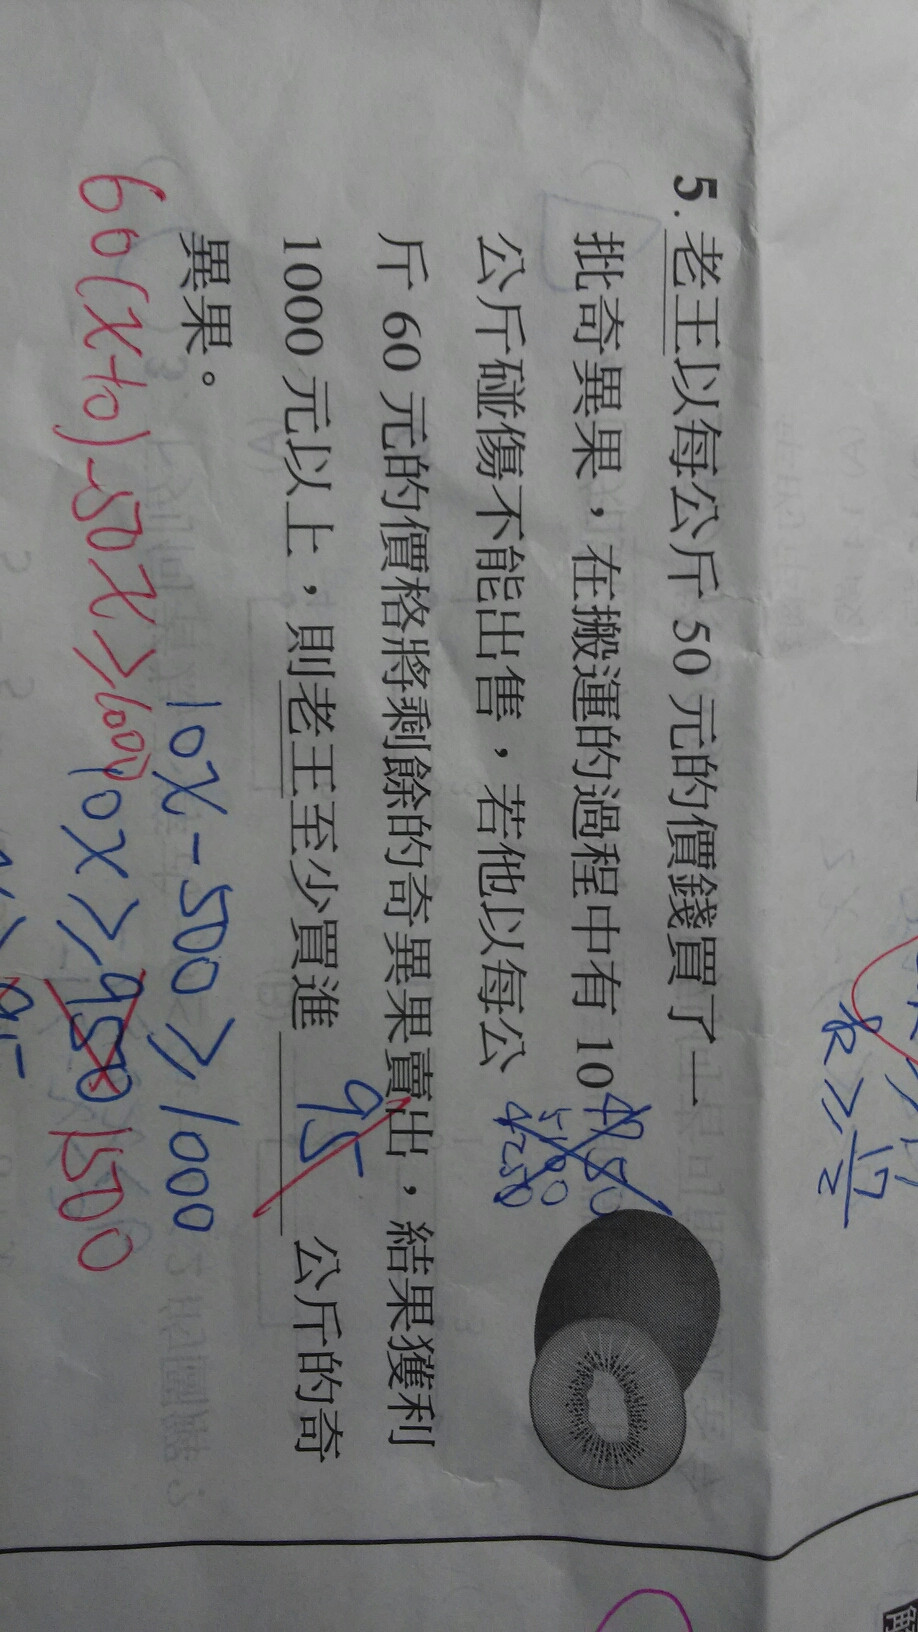 5. 老王以每公斤 50 元的價錢買了一
批奇異果，在搬運的過程中有 10
公斤碰傷不能出售，若他以每公
斤 60 元的價格將剩餘的奇異果賣出，結果獲利
1000 元以上，則老王至少買進 95 公斤的奇
異果。
10x-500≥1000
60(x-10)-50x≥1000
10x≥950 1500